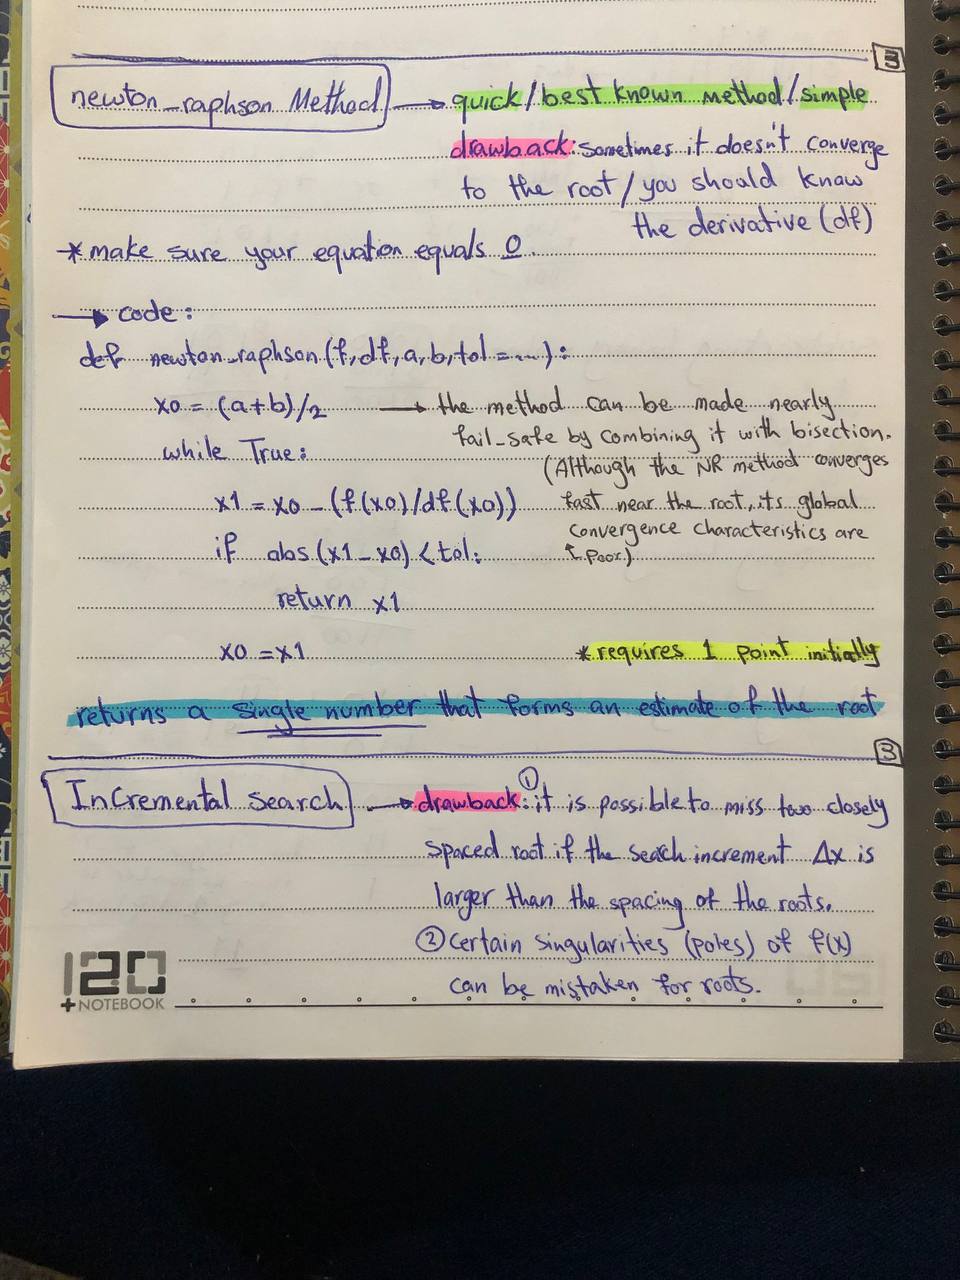 3
newton_raphson Method → quick/best known method/simple
drawback: sometimes it doesn't converge
to the root/you should know
the derivative (df)
* make sure your equation equals 0.
→ code:
def newton_raphson(f,df,a,b,tol=...):
x0 = (a+b)/2 → the method can be made nearly
fail_safe by combining it with bisection.
while True:
(Although the NR method converges
x1 = x0 - (f(x0)/df(x0)) fast near the root, its global
convergence characteristics are
if abs(x1-x0) < tol: poor)
return x1
x0 = x1 * requires 1 point initially
returns a single number that forms an estimate of the root
3
Incremental search → drawback: ① it is possible to miss two closely
spaced root if the seach increment Δx is
larger than the spacing of the roots.
② Certain singularities (poles) of f(x)
can be mistaken for roots.
120
+NOTEBOOK